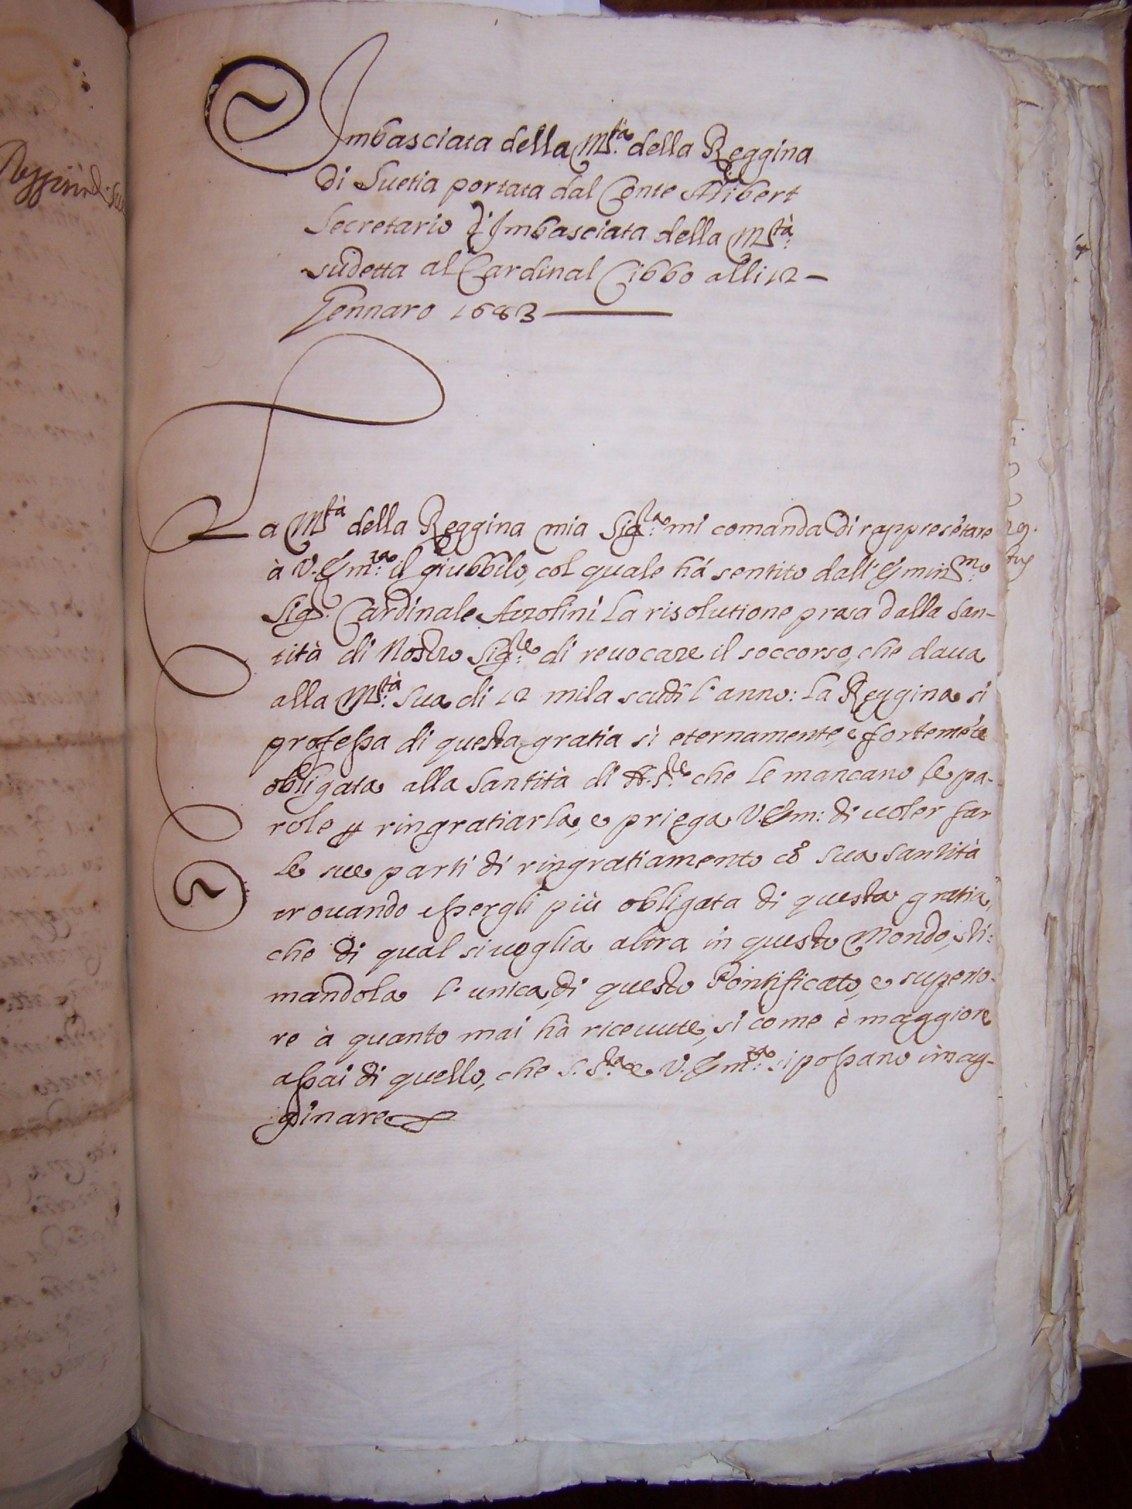 Imbasciata della M.tà della Reggina
di Suetia portata dal Conte Alibert
Secretario d'Imbasciata della M.tà
sudetta al Cardinal Cibbo alli 12
Gennaro 1683
La M.tà della Reggina mia Sig.ra mi comanda di rappresētare
à V. Em.za il giubbilo, col quale há sentito dall'Emin.mo
Sig.r Cardinale Azzolini la risolutione presa dalla San-
tità di Nostro Sig.re di revocare il soccorso, che daua
alla M.tà Sua di 12 mila scudi l'anno: la Reggina si
professa di questa gratia sì eternamente, e fortemēte
obligata alla Santità di N. S.re che le mancano le pa-
role ꝑ ringratiarla, e priega V. Em: di uoler far
le sue parti di ringratiamento cō sua Santità
trouando essergli più obligata di questa gratia,
che di qual siuoglia altra in questo Mondo, sti-
mandola l'unica, di questo Pontificato, e superio-
re à quanto mai hà riceuute, si come è maggiore
assai di quello, che S. S.tà e V. Em.za si possano imag-
ginare